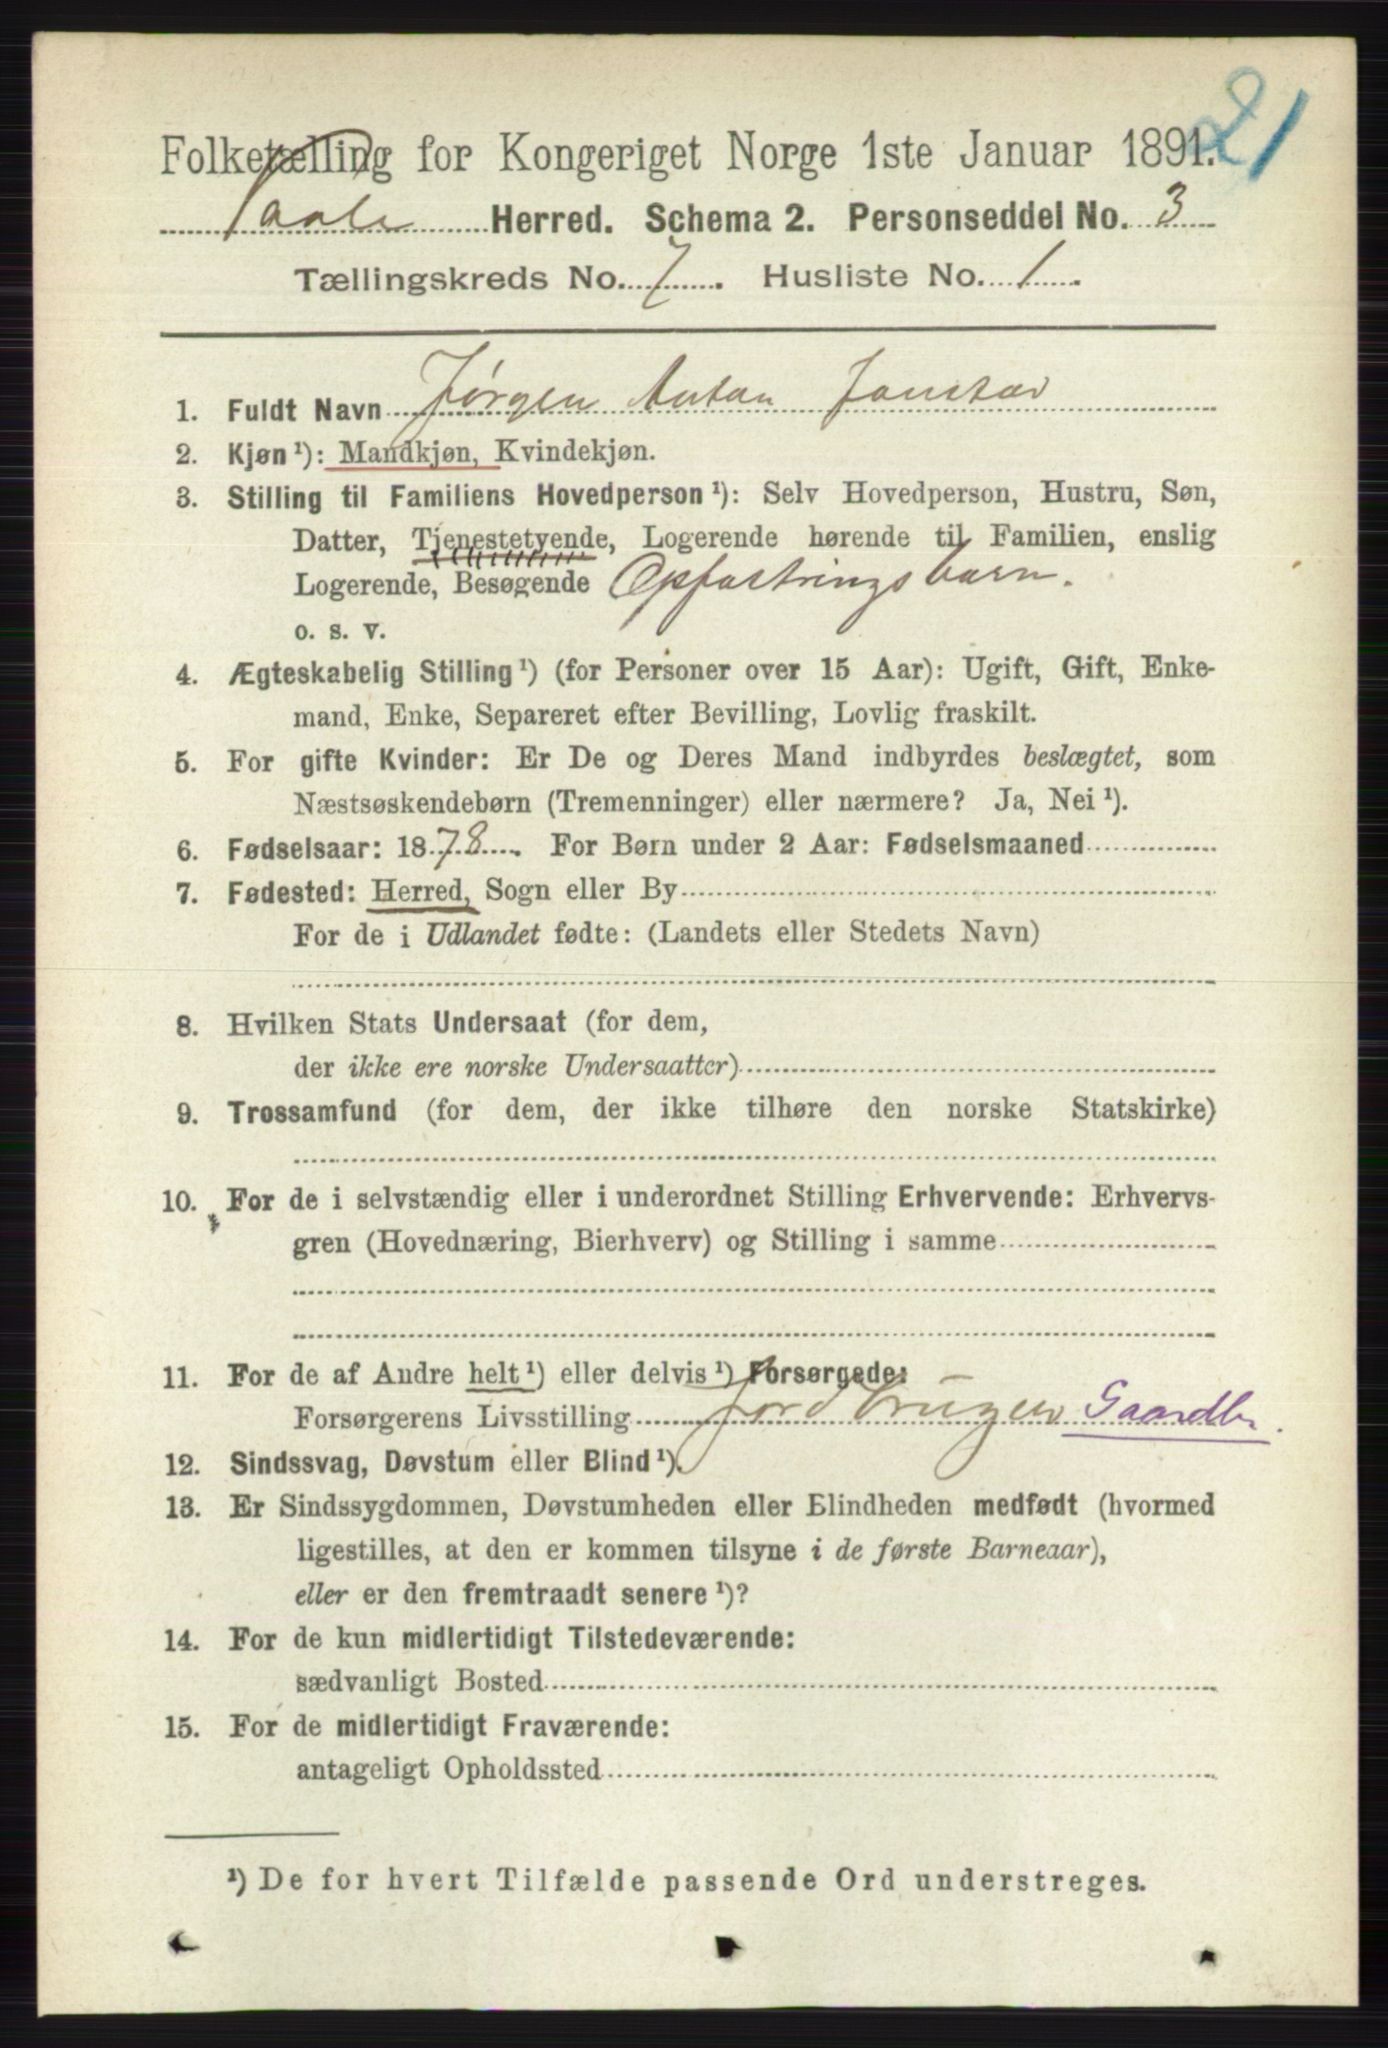 21
Folketælling for Kongeriget Norge 1ste Januar 1891.
Vaale Herred. Schema 2. Personseddel No. 3
Tællingskreds No. 7. Husliste No. 1.
1. Fuldt Navn Jørgen Anton
2. Kjøn¹): Mandkjøn, Kvindekjøn.
3. Stilling til Familiens Hovedperson¹): Selv Hovedperson, Hustru, Søn,
Datter, Tjenestetyende, Logerende hørende til Familien, enslig
Logerende, Besøgende Opfostringsbarn.
o. s. v.
4. Ægteskabelig Stilling¹) (for Personer over 15 Aar): Ugift, Gift, Enke-
mand, Enke, Separeret efter Bevilling, Lovlig fraskilt.
5. For gifte Kvinder: Er De og Deres Mand indbyrdes beslægtet, som
Næstsøskendebørn (Tremenninger) eller nærmere? Ja, Nei¹).
6. Fødselsaar: 1878. For Børn under 2 Aar: Fødselsmaaned
7. Fødested: Herred, Sogn eller By
For de i Udlandet fødte: (Landets eller Stedets Navn)
8. Hvilken Stats Undersaat (for dem,
der ikke ere norske Undersaatter)
9. Trossamfund (for dem, der ikke tilhøre den norske Statskirke)
10. For de i selvstændig eller i underordnet Stilling Erhvervende: Erhvervs-
gren (Hovednæring, Bierhverv) og Stilling i samme
11. For de af Andre helt¹) eller delvis¹) Forsørgede:
Forsørgerens Livsstilling Jordbruger Gaardbr.
12. Sindssvag, Døvstum eller Blind¹).
13. Er Sindssygdommen, Døvstumheden eller Blindheden medfødt (hvormed
ligestilles, at den er kommen tilsyne i de første Barneaar),
eller er den fremtraadt senere¹)?
14. For de kun midlertidigt Tilstedeværende:
sædvanligt Bosted
15. For de midlertidigt Fraværende:
antageligt Opholdssted
¹) De for hvert Tilfælde passende Ord understreges.